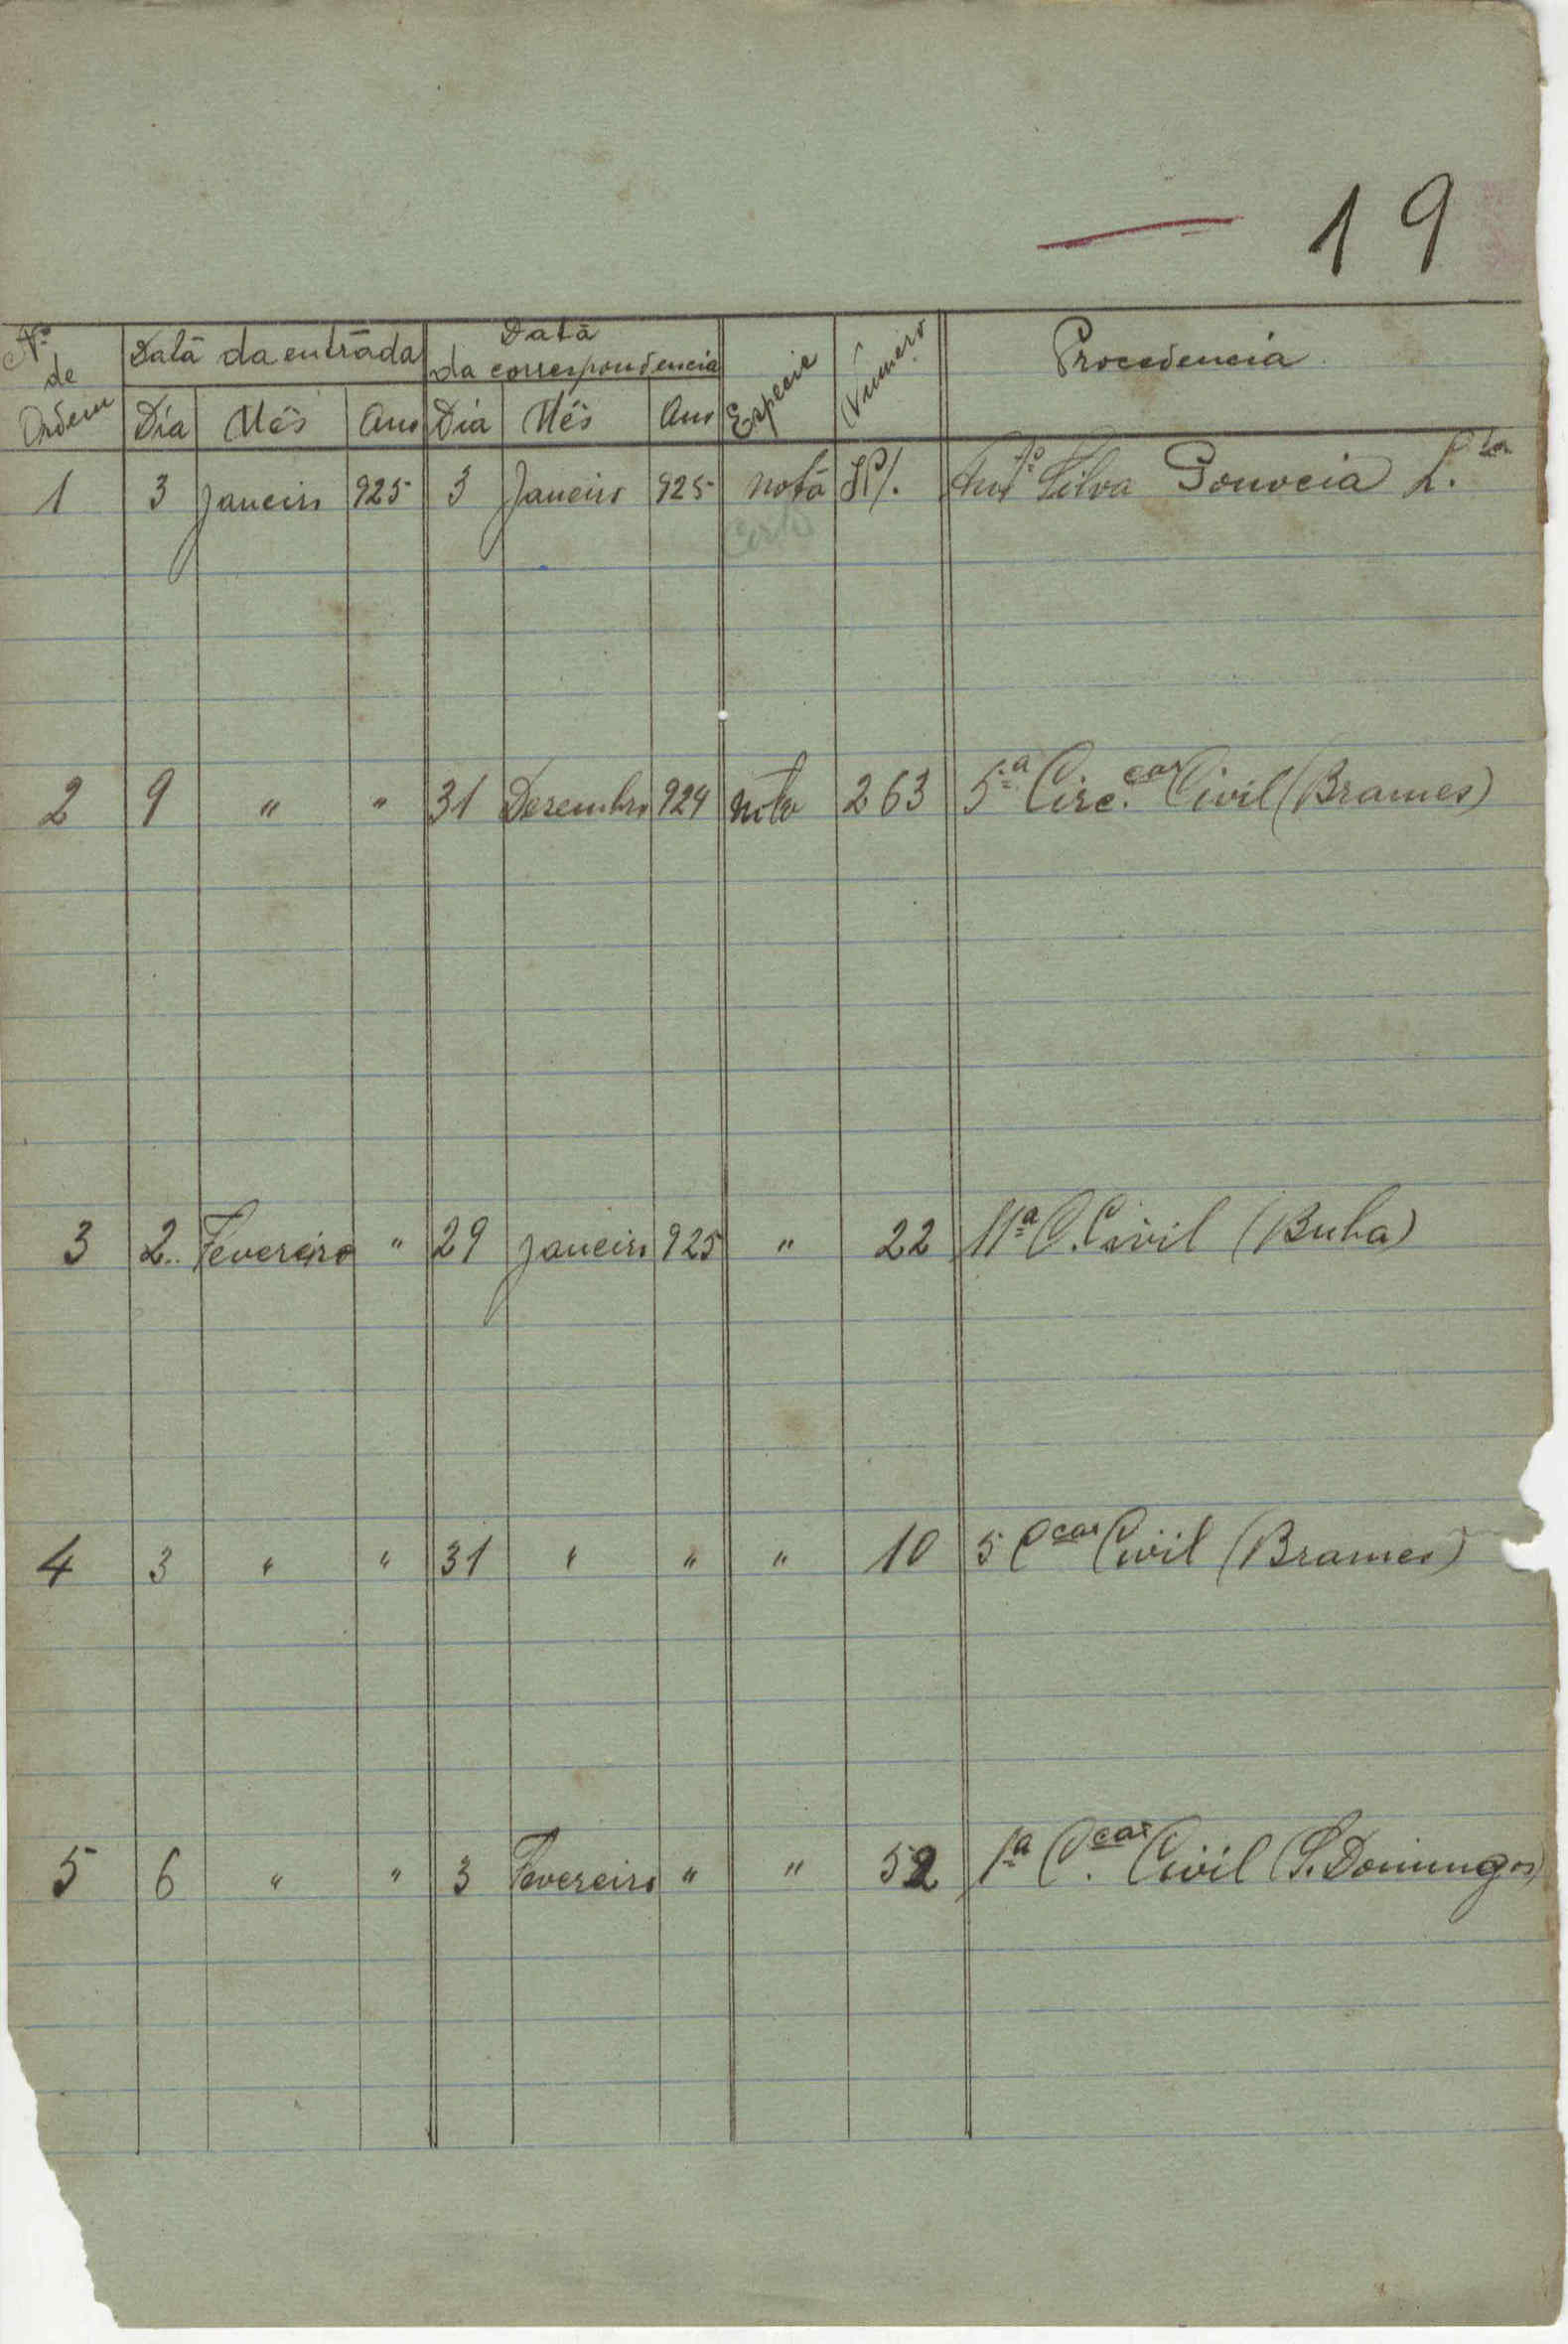 19
Nº de Ordem | Data da entrada | Data da correspondencia | Especie | Numero | Procedencia
Dia | Mês | Ano | Dia | Mês | Ano
1 | 3 | Janeiro | 925 | 3 | Janeiro | 925 | nota | | Antº Silva Gouveia L.da
2 | 9 | " | " | 31 | Desembro | 924 | nota | 263 | 5ª Circ.car Civil (Brames)
3 | 2.. | Fevereiro | " | 29 | Janeiro | 925 | " | 22 | 11ª C. Civil (Buba)
4 | 3 | " | " | 31 | " | " | " | 10 | 5 Ccar Civil (Brames)
5 | 6 | " | " | 3 | Fevereiro | " | " | 52 | 1ª C.car Civil (S. Domingos)